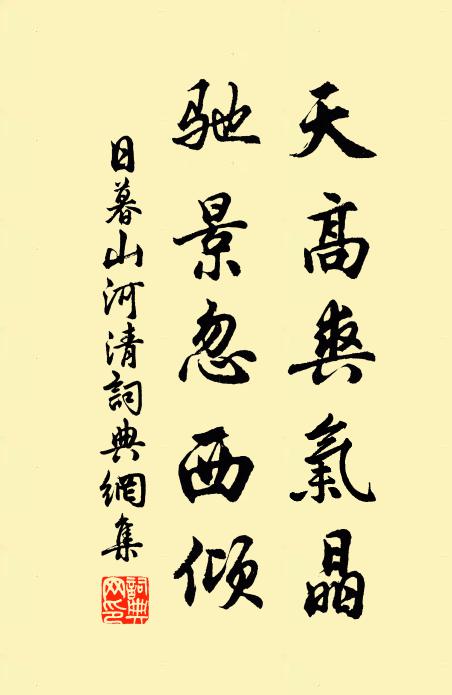 天高爽氣晶
馳景忽西傾
日暮山河清詞典網集
詞典网印